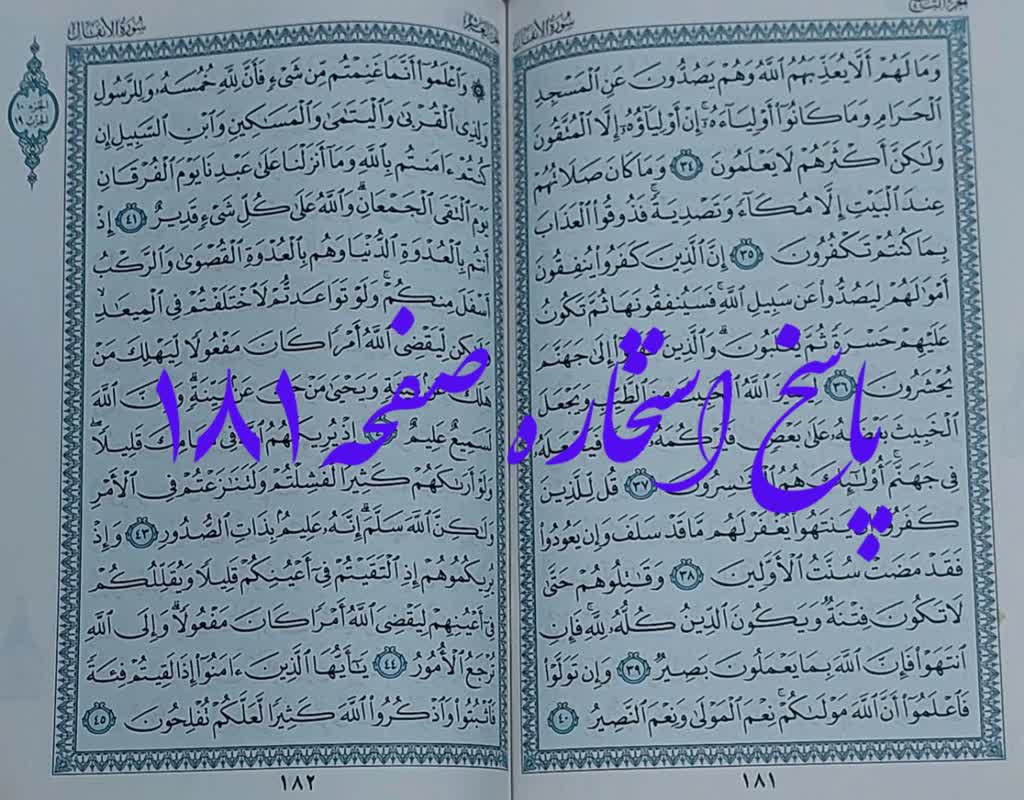 سُورَةُ الأَنفَالِ
وَمَا لَهُمْ أَلَّا يُعَذِّبَهُمُ ٱللَّهُ وَهُمْ يَصُدُّونَ عَنِ ٱلْمَسْجِدِ
ٱلْحَرَامِ وَمَا كَانُوٓا۟ أَوْلِيَآءَهُۥٓ ۚ إِنْ أَوْلِيَآؤُهُۥٓ إِلَّا ٱلْمُتَّقُونَ
وَلَـٰكِنَّ أَكْثَرَهُمْ لَا يَعْلَمُونَ ٣٤ وَمَا كَانَ صَلَاتُهُمْ
عِندَ ٱلْبَيْتِ إِلَّا مُكَآءً وَتَصْدِيَةً ۚ فَذُوقُوا۟ ٱلْعَذَابَ
بِمَا كُنتُمْ تَكْفُرُونَ ٣٥ إِنَّ ٱلَّذِينَ كَفَرُوا۟ يُنفِقُونَ
أَمْوَٰلَهُمْ لِيَصُدُّوا۟ عَن سَبِيلِ ٱللَّهِ ۚ فَسَيُنفِقُونَهَا ثُمَّ تَكُونُ
عَلَيْهِمْ حَسْرَةً ثُمَّ يُغْلَبُونَ ۗ وَٱلَّذِينَ كَفَرُوٓا۟ إِلَىٰ جَهَنَّمَ
يُحْشَرُونَ ٣٦ لِيَمِيزَ ٱللَّهُ ٱلْخَبِيثَ مِنَ ٱلطَّيِّبِ وَيَجْعَلَ
ٱلْخَبِيثَ بَعْضَهُۥ عَلَىٰ بَعْضٍ فَيَرْكُمَهُۥ فَيَجْعَلَهُۥ
فِى جَهَنَّمَ ۚ أُو۟لَـٰٓئِكَ هُمُ ٱلْخَـٰسِرُونَ ٣٧ قُل لِّلَّذِينَ
كَفَرُوٓا۟ إِن يَنتَهُوا۟ يُغْفَرْ لَهُم مَّا قَدْ سَلَفَ وَإِن يَعُودُوا۟
فَقَدْ مَضَتْ سُنَّتُ ٱلْأَوَّلِينَ ٣٨ وَقَـٰتِلُوهُمْ حَتَّىٰ
لَا تَكُونَ فِتْنَةٌ وَيَكُونَ ٱلدِّينُ كُلُّهُۥ لِلَّهِ ۚ فَإِنِ
ٱنتَهَوْا۟ فَإِنَّ ٱللَّهَ بِمَا يَعْمَلُونَ بَصِيرٌ ٣٩ وَإِن تَوَلَّوْا۟
فَٱعْلَمُوٓا۟ أَنَّ ٱللَّهَ مَوْلَىٰكُمْ ۚ نِعْمَ ٱلْمَوْلَىٰ وَنِعْمَ ٱلنَّصِيرُ ٤٠
١٨١
سُورَةُ الأَنفَالِ
۞ وَٱعْلَمُوٓا۟ أَنَّمَا غَنِمْتُم مِّن شَىْءٍ فَأَنَّ لِلَّهِ خُمُسَهُۥ وَلِلرَّسُولِ
وَلِذِى ٱلْقُرْبَىٰ وَٱلْيَتَـٰمَىٰ وَٱلْمَسَـٰكِينِ وَٱبْنِ ٱلسَّبِيلِ إِن
كُنتُمْ ءَامَنتُم بِٱللَّهِ وَمَآ أَنزَلْنَا عَلَىٰ عَبْدِنَا يَوْمَ ٱلْفُرْقَانِ
يَوْمَ ٱلْتَقَى ٱلْجَمْعَانِ ۗ وَٱللَّهُ عَلَىٰ كُلِّ شَىْءٍ قَدِيرٌ ٤١ إِذْ
أَنتُم بِٱلْعُدْوَةِ ٱلدُّنْيَا وَهُم بِٱلْعُدْوَةِ ٱلْقُصْوَىٰ وَٱلرَّكْبُ
أَسْفَلَ مِنكُمْ ۚ وَلَوْ تَوَاعَدتُّمْ لَٱخْتَلَفْتُمْ فِى ٱلْمِيعَـٰدِ ۙ
وَلَـٰكِن لِّيَقْضِىَ ٱللَّهُ أَمْرًا كَانَ مَفْعُولًا لِّيَهْلِكَ مَنْ
هَلَكَ عَنۢ بَيِّنَةٍ وَيَحْيَىٰ مَنْ حَىَّ عَنۢ بَيِّنَةٍ ۗ وَإِنَّ ٱللَّهَ
لَسَمِيعٌ عَلِيمٌ إِذْ يُرِيكَهُمُ ٱللَّهُ فِى مَنَامِكَ قَلِيلًا ۖ
وَلَوْ أَرَىٰكَهُمْ كَثِيرًا لَّفَشِلْتُمْ وَلَتَنَـٰزَعْتُمْ فِى ٱلْأَمْرِ
وَلَـٰكِنَّ ٱللَّهَ سَلَّمَ ۗ إِنَّهُۥ عَلِيمٌۢ بِذَاتِ ٱلصُّدُورِ ٤٣ وَإِذْ
يُرِيكُمُوهُمْ إِذِ ٱلْتَقَيْتُمْ فِىٓ أَعْيُنِكُمْ قَلِيلًا وَيُقَلِّلُكُمْ
فِىٓ أَعْيُنِهِمْ لِيَقْضِىَ ٱللَّهُ أَمْرًا كَانَ مَفْعُولًا ۗ وَإِلَى ٱللَّهِ
تُرْجَعُ ٱلْأُمُورُ ٤٤ يَـٰٓأَيُّهَا ٱلَّذِينَ ءَامَنُوٓا۟ إِذَا لَقِيتُمْ فِئَةً
فَٱثْبُتُوا۟ وَٱذْكُرُوا۟ ٱللَّهَ كَثِيرًا لَّعَلَّكُمْ تُفْلِحُونَ ٤٥
١٨٢
پاسخ استخاره صفحه ۱۸۱